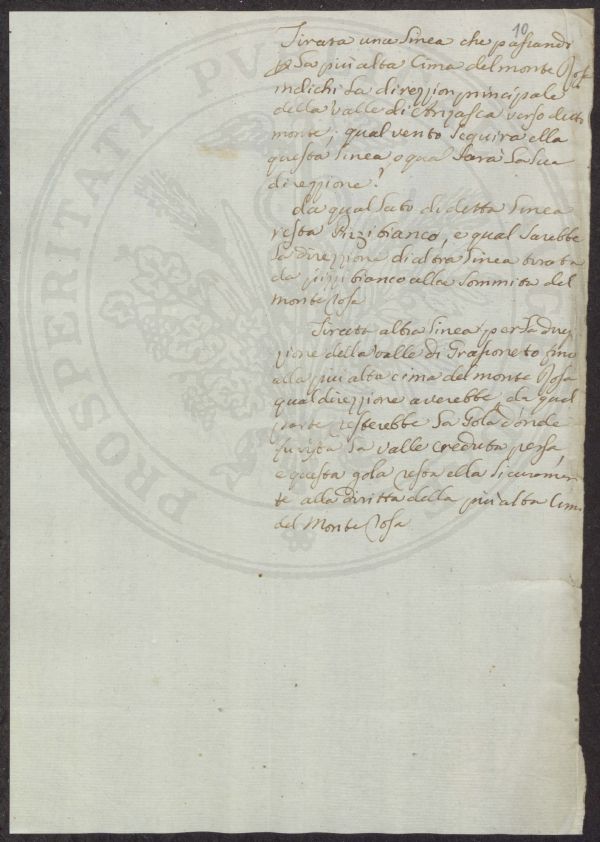 10
Tirata una linea che passando
per la più alta Cima del monte Rosa
indichi la direzzion principale
della valle di Anzasca verso detto
monte; qual vento seguirà ella
questa linea, o qual sarà la sua
direzzione?
da qual lato di detta linea
resta Pizzi bianco, e qual sarebbe
la direzzione di altra linea tirata
da pizzi bianco alla sommita del
monte Rosa
Tirata altra linea per la dire
zione della valle di Grasoneto fino
alla più alta cima del monte Rosa
qual direzzione averebbe, da qual
parte resterebbe la Gola dònde
fu vista la valle creduta persa,
e questa gola resta ella sicuramen
te alla diritta della più alta Cima
del Monte Rosa
PROSPERITATI PVBLICAE